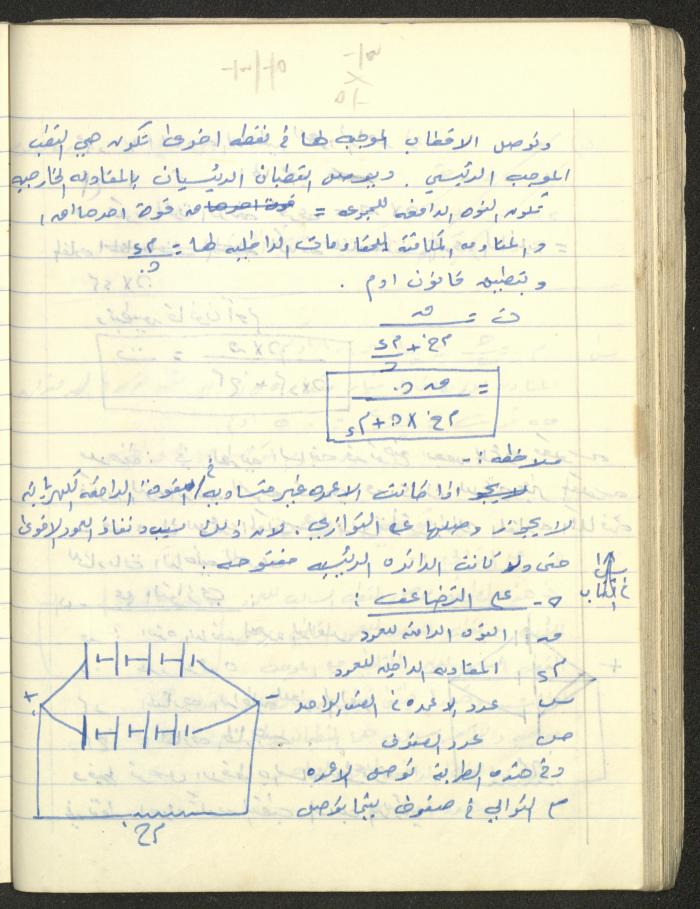 وتوصل الاقطاب الموجبه لها في نقطه اخرى تكون هي القطب
الموجب الرئيسي . ويوصل القطبان الرئيسيان بالمقاومه الخارجيه
تكون القوه الدافعه للمجموعه = قوة احدها
و المقاومه المكافئة للمقاومات الداخليه لها = م د / ن
وبتطبيق قانون اوم .
ت = ق / م خ + م د / ن
= ق ن / م خ × ن + م د
ملاحظه :-
لا يجو اذا كانت الاعمده غير متساويه في القوة الدافعة الكهربائيه
لا يجوز وصلها على التوازي . لان ذلك يسبب نفاذ العمود الاقوى
حتى ولو كانت الدائره الرئيسيه مفتوحه
على التضاعف :
ق القوه الدافعه للعمود
م د المقاومه الداخليه للعمود
س عدد الاعمده في الصف الواحد
ص عدد الصفوف
وفي هذه الطريقة توصل الاعمده
ع التوالي في صفوف بينما توصل
+ -
م خ